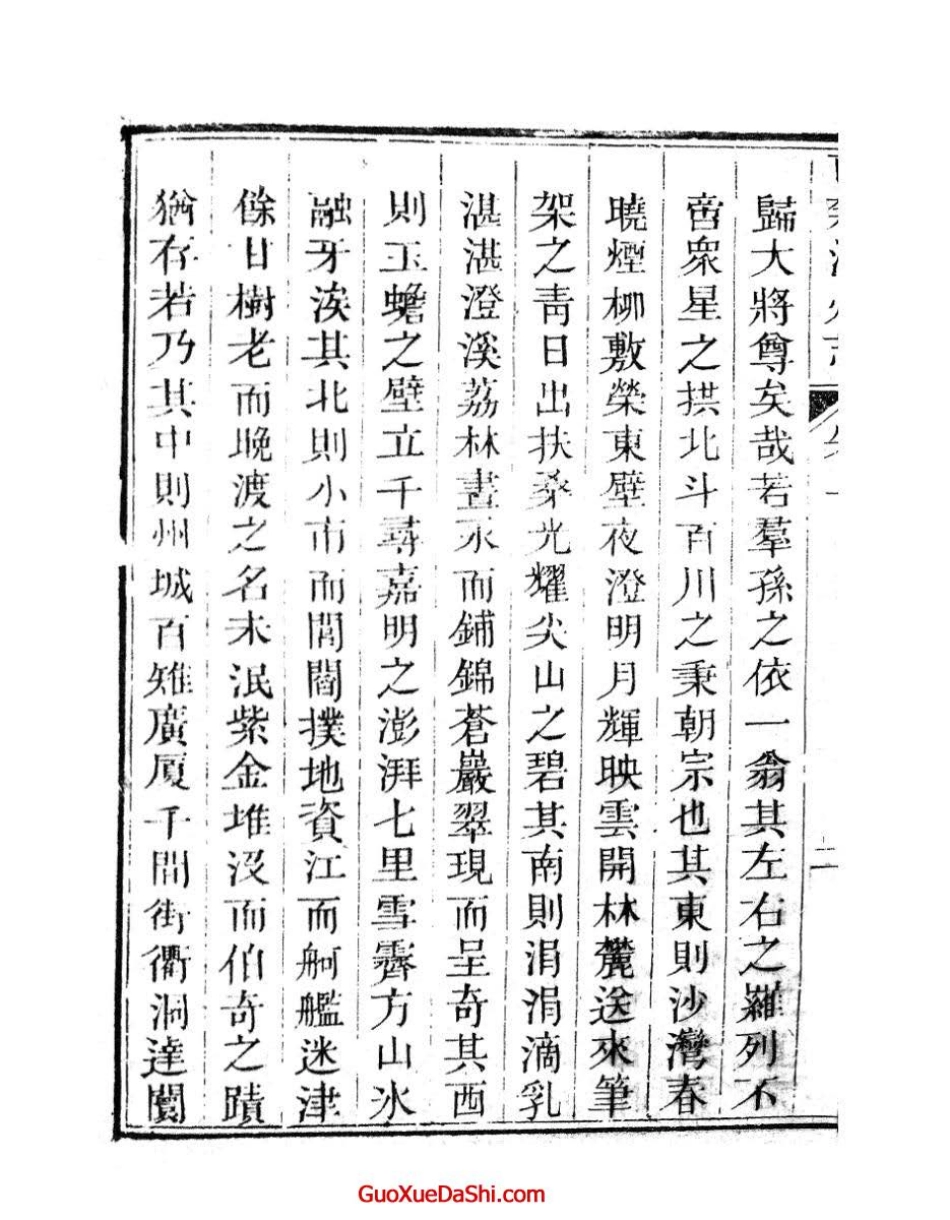 歸大將尊矣哉若羣孫之依一翁其左右之羅列不
啻衆星之拱北斗百川之秉朝宗也其東則沙灣春
曉煙柳敷榮東壁夜澄明月輝映雲開林麓送來筆
架之靑日出扶桑光耀尖山之碧其南則涓涓滴乳
湛湛澄溪荔林晝永而鋪錦蒼巖翠現而呈奇其西
則玉蟾之壁立千尋嘉明之澎湃七里雪霽方山氷
融牙渼其北則小市而閭閻撲地資江而舸艦迷津
餘甘樹老而晚渡之名未泯紫金堆没而伯奇之蹟
猶存若乃其中則州城百雉廣厦千間街衢洞達闤
二
GuoXueDaShi.com